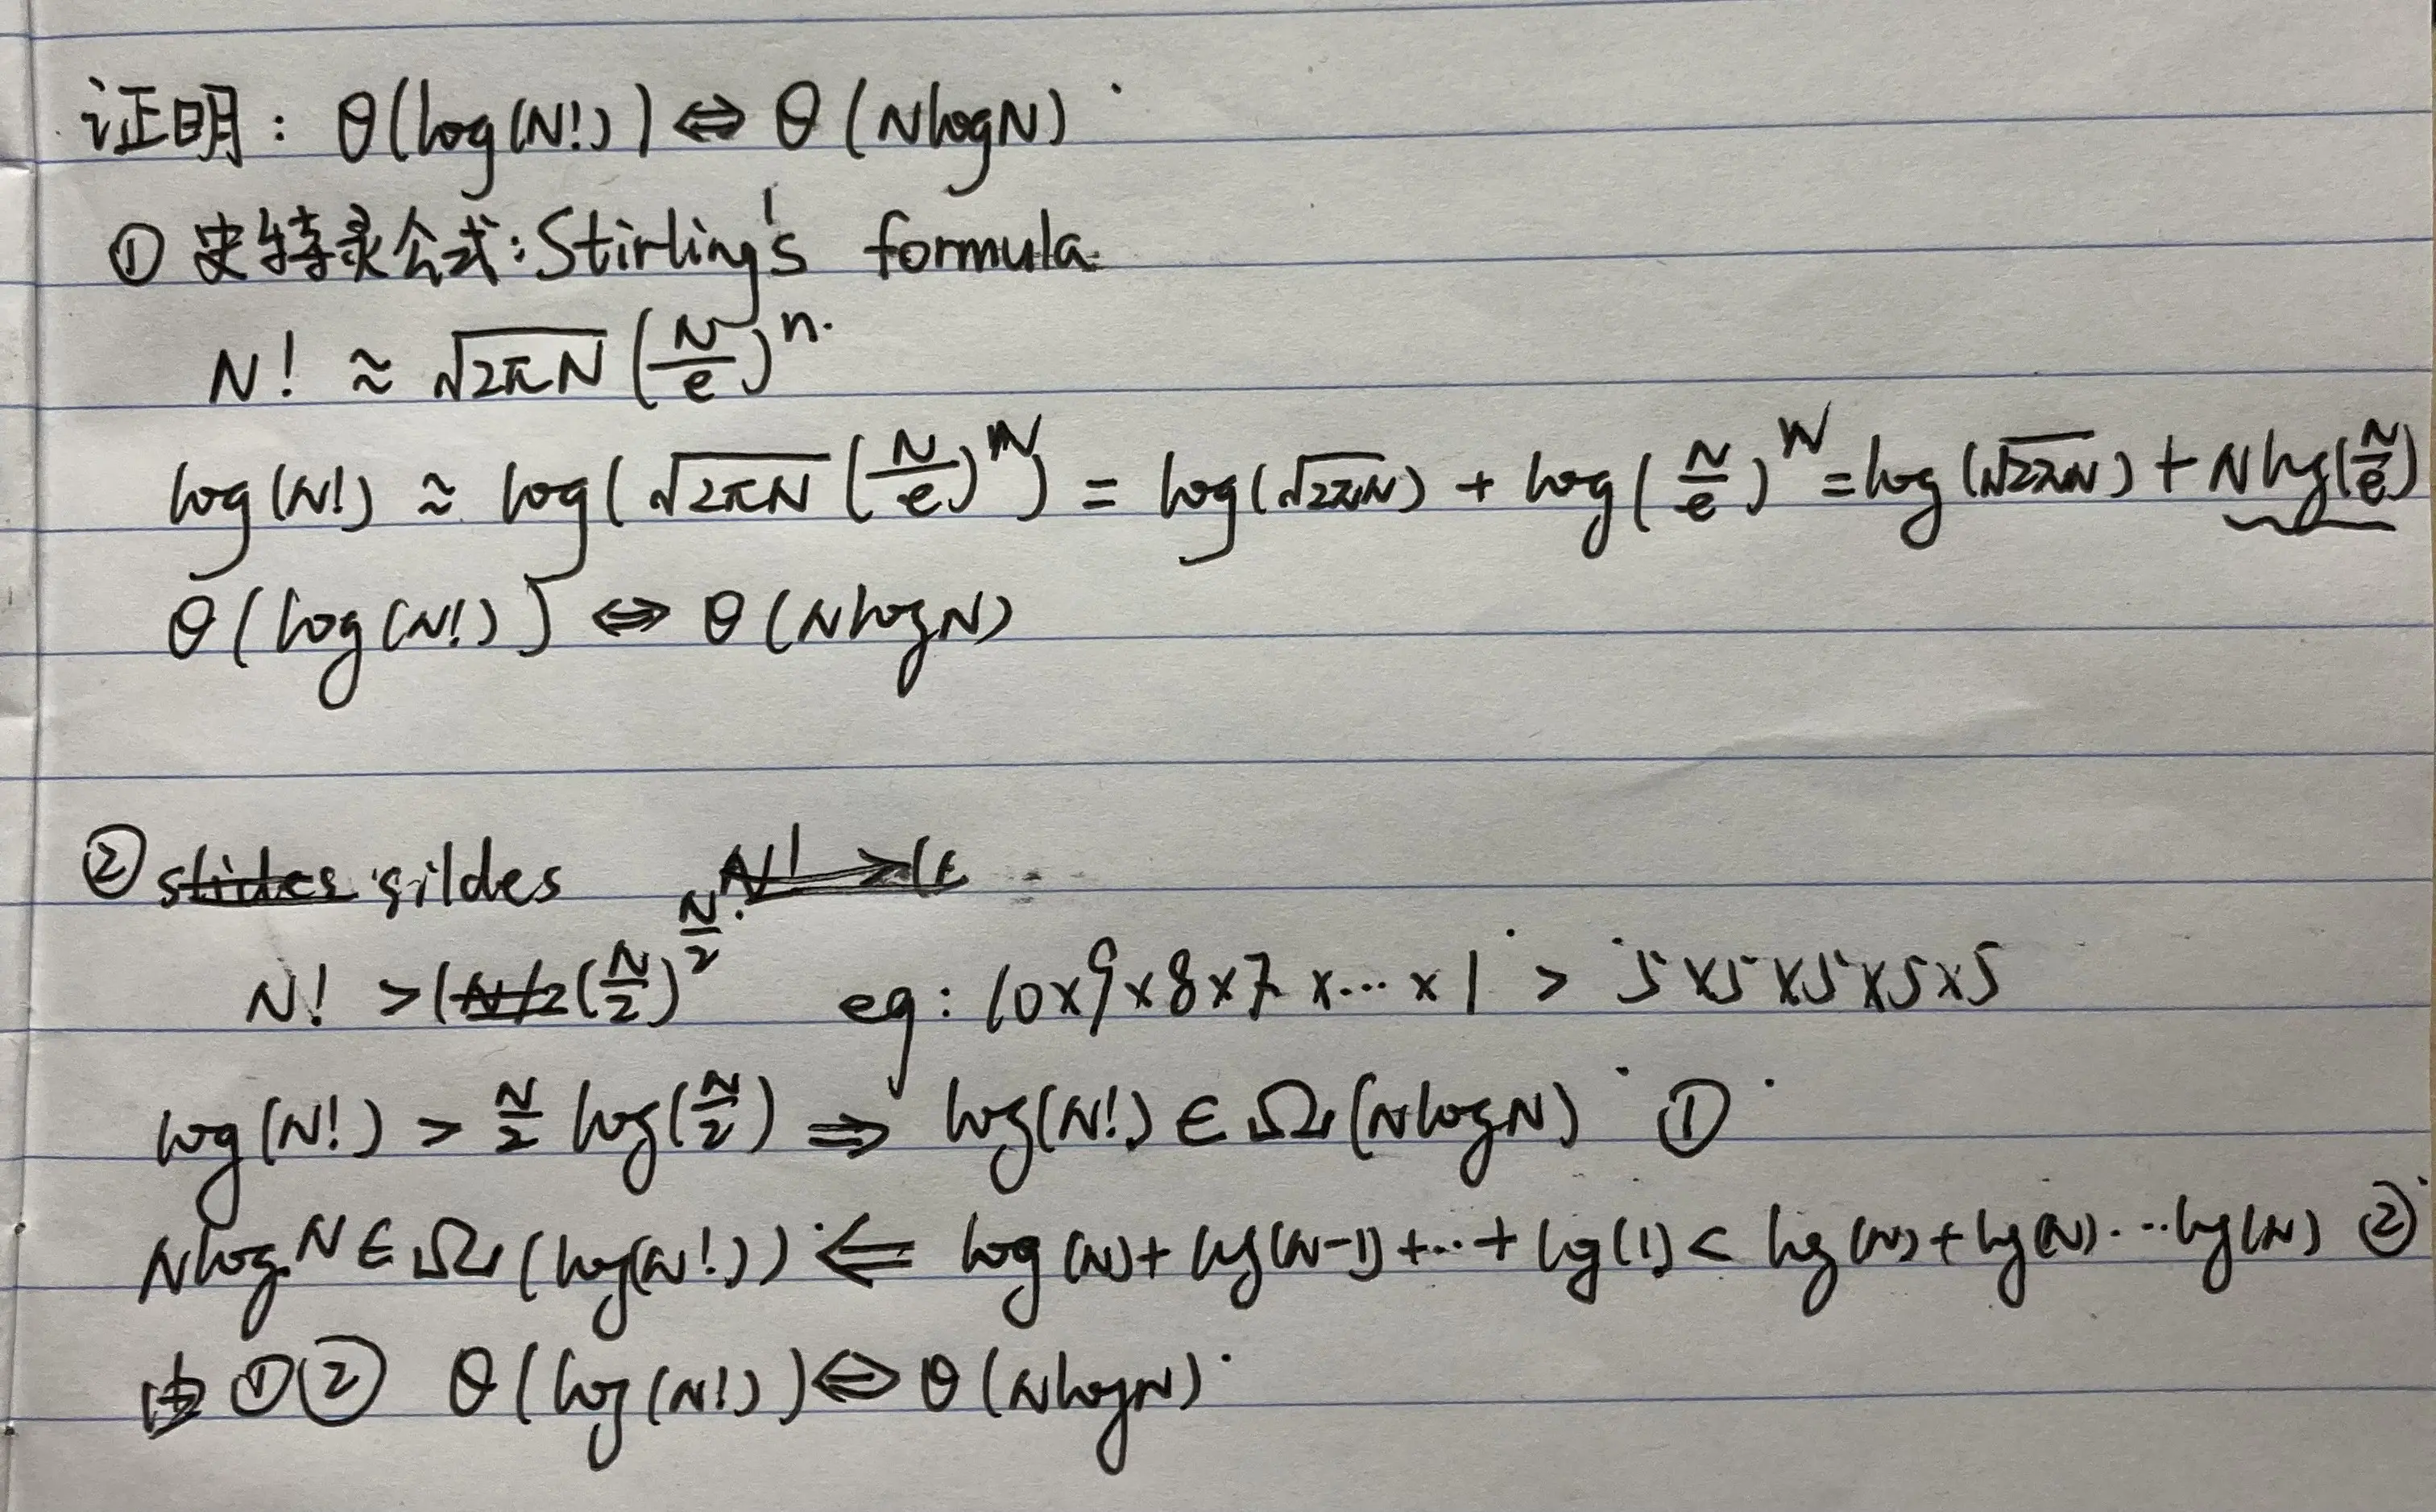 证明: θ(log(N!)) ⇔ θ(NlogN)
① 史特灵公式: Stirling's formula.
N! ≈ √(2πN) (N/e)^n.
log(N!) ≈ log(√(2πN) (N/e)^N) = log(√(2πN)) + log(N/e)^N = log(√(2πN)) + Nlog(N/e)
θ(log(N!)) ⇔ θ(NlogN)
② slides sildes N! > (
N! > (N/2 (N/2)^(N/2) eg: 10×9×8×7×...×1 > 5×5×5×5×5
log(N!) > N/2 log(N/2) ⇒ log(N!) ∈ Ω(NlogN) ①
NlogN ∈ Ω(log(N!)) ⇐ log(N)+log(N-1)+...+log(1) < log(N)+log(N)...log(N) ②
由①② θ(log(N!)) ⇔ θ(NlogN)